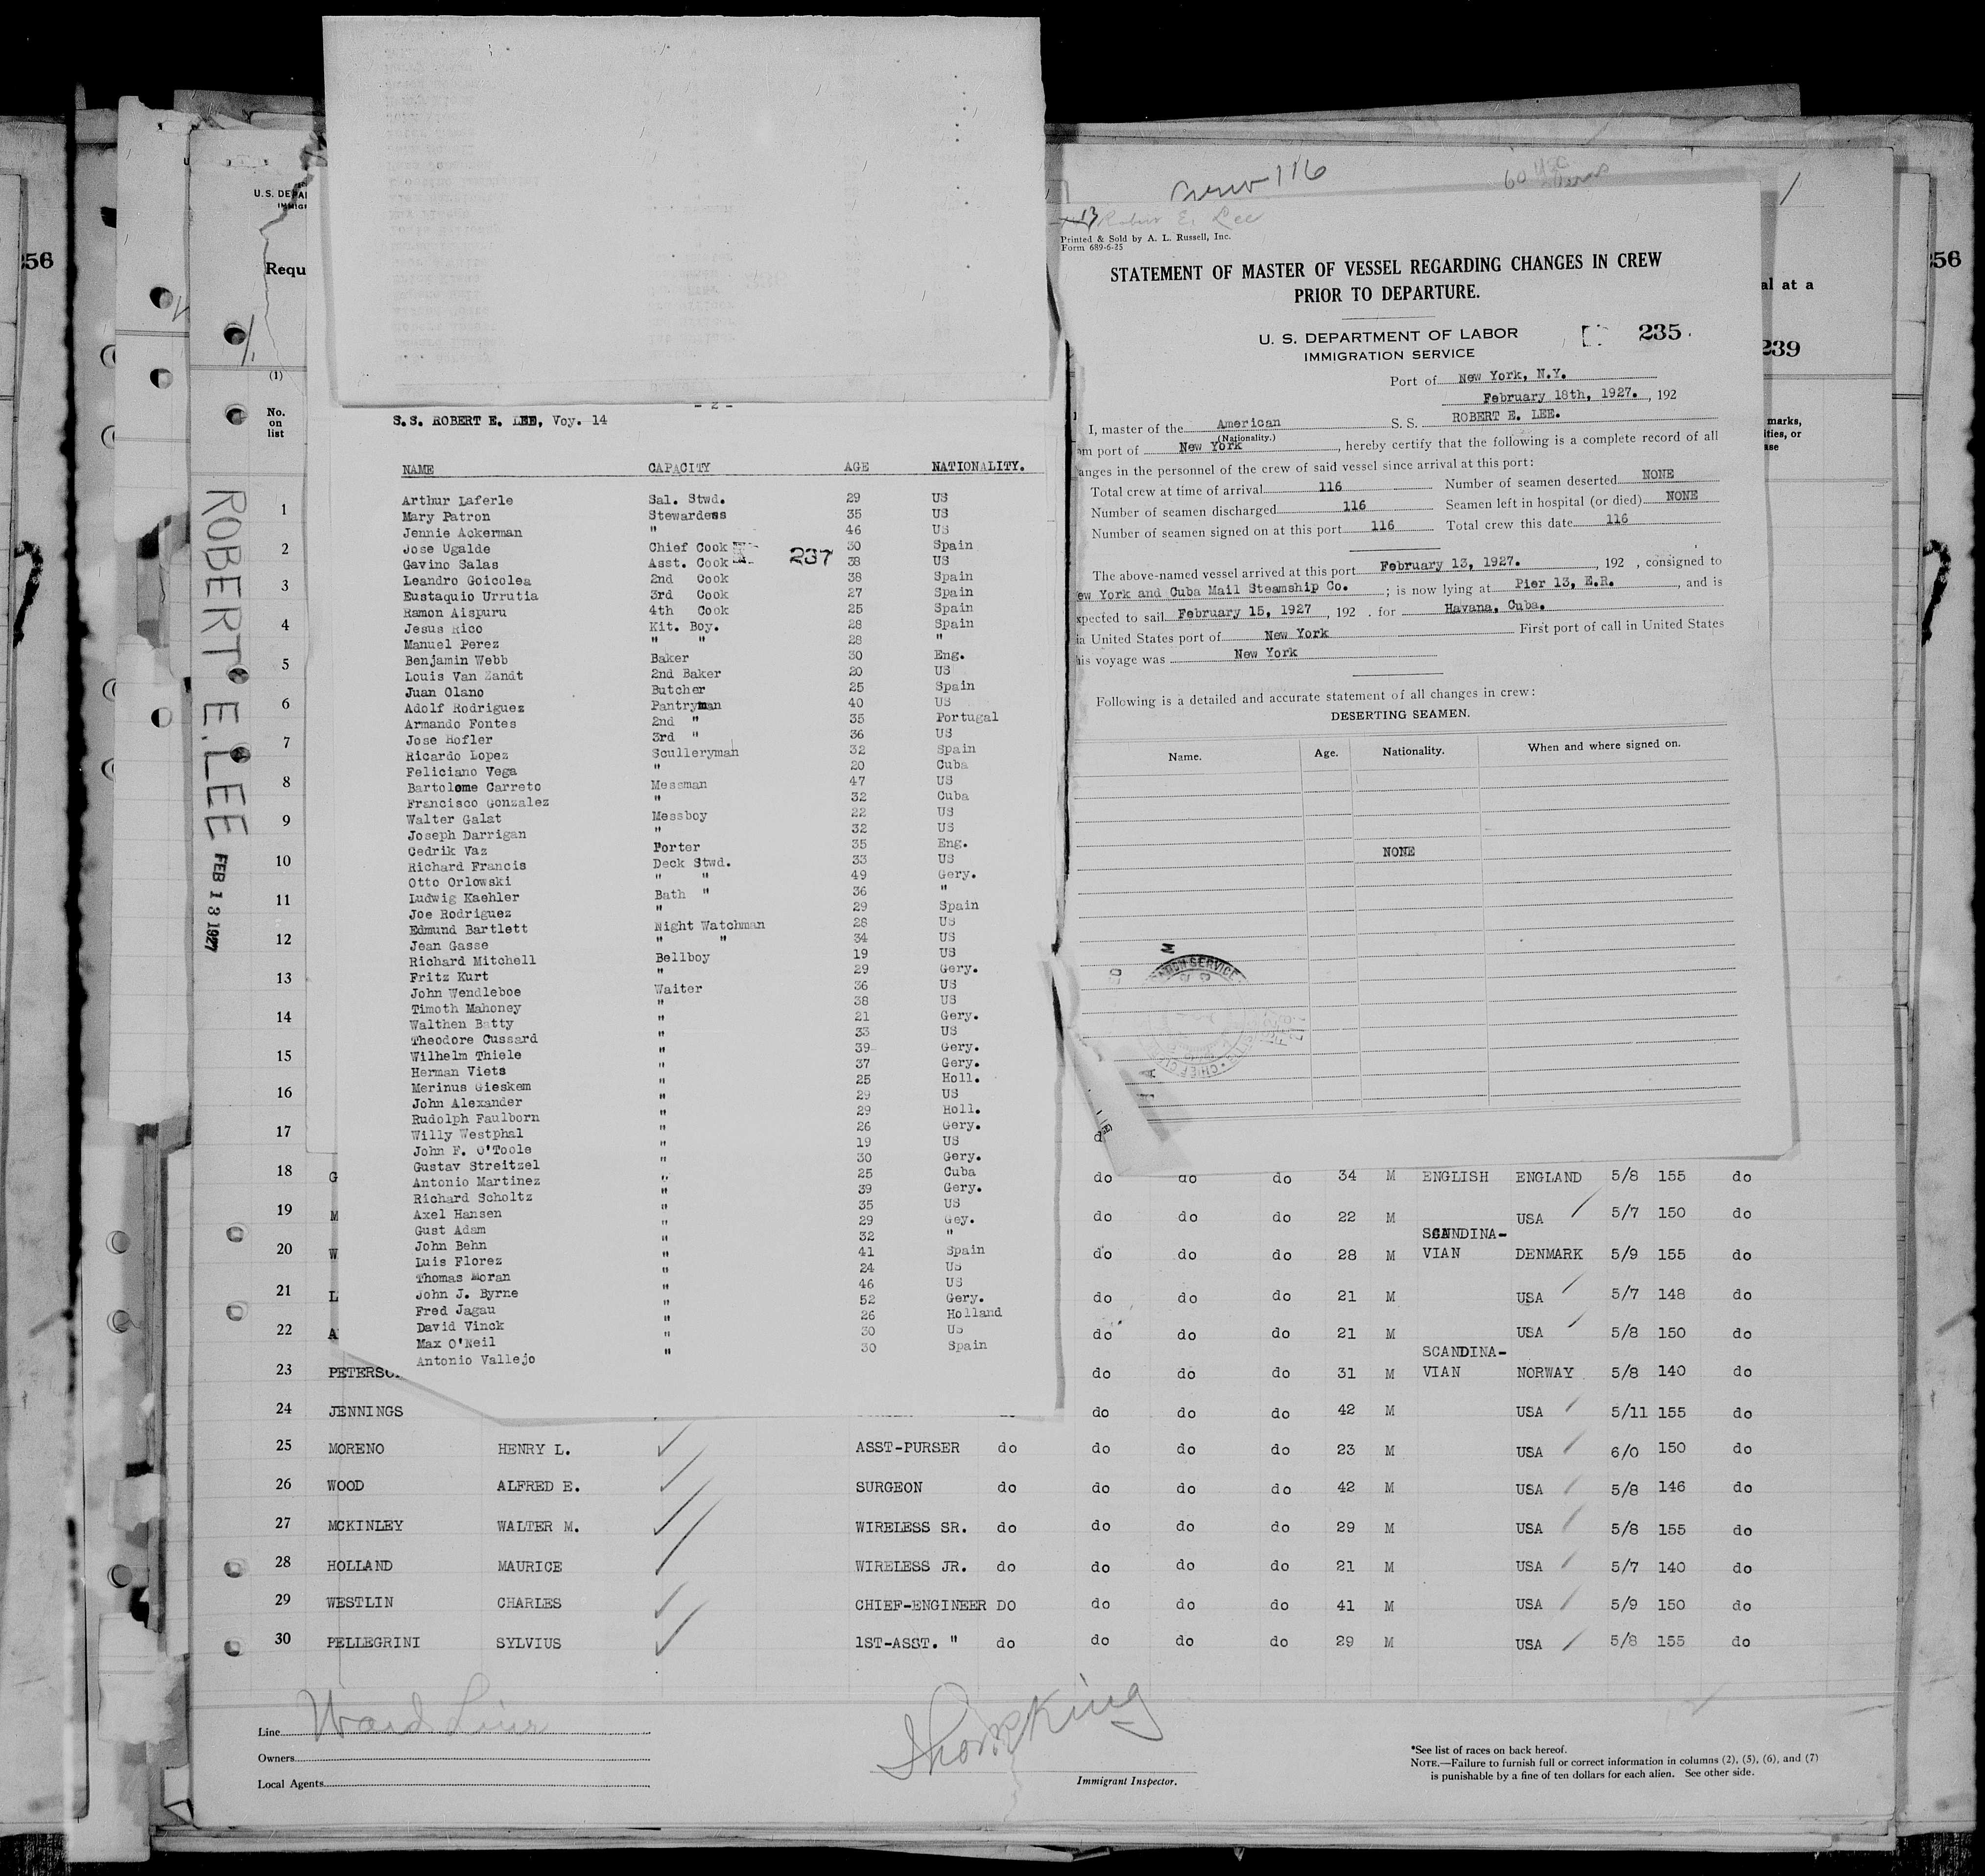 256
U.S. DEPA
IMMIGR
Requ
(1)
No.
on
list
ROBERT E. LEE
FEB 13 1927
- 2 -
S.S. ROBERT E. LEE, Voy. 14
NAME CAPACITY AGE NATIONALITY.
237
Arthur Laferle Sal. Stwd. 29 US
Mary Patron Stewardess 35 US
Jennie Ackerman " 46 US
Jose Ugalde Chief Cook 30 Spain
Gavino Salas Asst. Cook 38 US
Leandro Goicolea 2nd Cook 38 Spain
Eustaquio Urrutia 3rd Cook 27 Spain
Ramon Aispuru 4th Cook 25 Spain
Jesus Rico Kit. Boy. 28 Spain
Manuel Perez " " 28 "
Benjamin Webb Baker 30 Eng.
Louis Van Zandt 2nd Baker 20 US
Juan Olano Butcher 25 Spain
Adolf Rodriguez Pantryman 40 US
Armando Fontes 2nd " 35 Portugal
Jose Hofler 3rd " 36 US
Ricardo Lopez Sculleryman 32 Spain
Feliciano Vega " 20 Cuba
Bartolome Carreto Messman 47 US
Francisco Gonzalez " 32 Cuba
Walter Galat Messboy 22 US
Joseph Darrigan " 32 US
Cedrik Vaz Porter 35 Eng.
Richard Francis Deck Stwd. 33 US
Otto Orlowski " " 49 Gery.
Ludwig Kaehler Bath " 36 "
Joe Rodriguez " 29 Spain
Edmund Bartlett Night Watchman 28 US
Jean Gasse " " 34 US
Richard Mitchell Bellboy 19 US
Fritz Kurt " 29 Gery.
John Wendleboe Waiter 36 US
Timoth Mahoney " 38 US
Walthen Batty " 21 Gery.
Theodore Cussard " 33 US
Wilhelm Thiele " 39 Gery.
Herman Viets " 37 Gery.
Merinus Gieskem " 25 Holl.
John Alexander " 29 US
Rudolph Faulborn " 29 Holl.
Willy Westphal " 26 Gery.
John F. O'Toole " 19 US
Gustav Streitzel " 30 Gery.
Antonio Martinez " 25 Cuba
Richard Scholtz " 39 Gery.
Axel Hansen " 35 US
Gust Adam " 29 Gey.
John Behn " 32 "
Luis Florez " 41 Spain
Thomas Moran " 24 US
John J. Byrne " 46 US
Fred Jagau " 52 Gery.
David Vinck " 26 Holland
Max O'Neil " 30 US
Antonio Vallejo " 30 Spain
116
60
13 Robert E. Lee
Printed & Sold by A. L. Russell, Inc.
Form 689-6-25
STATEMENT OF MASTER OF VESSEL REGARDING CHANGES IN CREW
PRIOR TO DEPARTURE.
U. S. DEPARTMENT OF LABOR
IMMIGRATION SERVICE
235.
Port of New York, N.Y.
February 18th, 1927., 192
I, master of the American S. S. ROBERT E. LEE.
(Nationality.)
om port of New York, hereby certify that the following is a complete record of all
anges in the personnel of the crew of said vessel since arrival at this port:
Total crew at time of arrival 116 Number of seamen deserted NONE
Number of seamen discharged 116 Seamen left in hospital (or died) NONE
Number of seamen signed on at this port 116 Total crew this date 116
The above-named vessel arrived at this port February 13, 1927., 192 , consigned to
ew York and Cuba Mail Steamship Co.; is now lying at Pier 13, E.R., and is
xpected to sail February 15, 1927, 192 . for Havana, Cuba.
ia United States port of New York First port of call in United States
his voyage was New York
Following is a detailed and accurate statement of all changes in crew:
DESERTING SEAMEN.
Name. Age. Nationality. When and where signed on.
NONE
al at a
239
marks,
ities, or
ase
256
1
2
3
4
5
6
7
8
9
10
11
12
13
14
15
16
17
18 G do do do 34 M ENGLISH ENGLAND 5/8 155 do
19 M do do do 22 M USA 5/7 150 do
20 W do do do 28 M SCANDINA-
VIAN DENMARK 5/9 155 do
21 L do do do 21 M USA 5/7 148 do
22 A do do do 21 M USA 5/8 150 do
23 PETERSO do do do 31 M SCANDINA-
VIAN NORWAY 5/8 140 do
24 JENNINGS do do do 42 M USA 5/11 155 do
25 MORENO HENRY L. ASST-PURSER do do do do 23 M USA 6/0 150 do
26 WOOD ALFRED E. SURGEON do do do do 42 M USA 5/8 146 do
27 MCKINLEY WALTER M. WIRELESS SR. do do do do 29 M USA 5/8 155 do
28 HOLLAND MAURICE WIRELESS JR. do do do do 21 M USA 5/7 140 do
29 WESTLIN CHARLES CHIEF-ENGINEER DO do do do 41 M USA 5/9 150 do
30 PELLEGRINI SYLVIUS 1ST-ASST. " do do do do 29 M USA 5/8 155 do
Line Ward Line
Owners
Local Agents
Immigrant Inspector.
*See list of races on back hereof.
NOTE.—Failure to furnish full or correct information in columns (2), (5), (6), and (7)
is punishable by a fine of ten dollars for each alien. See other side.